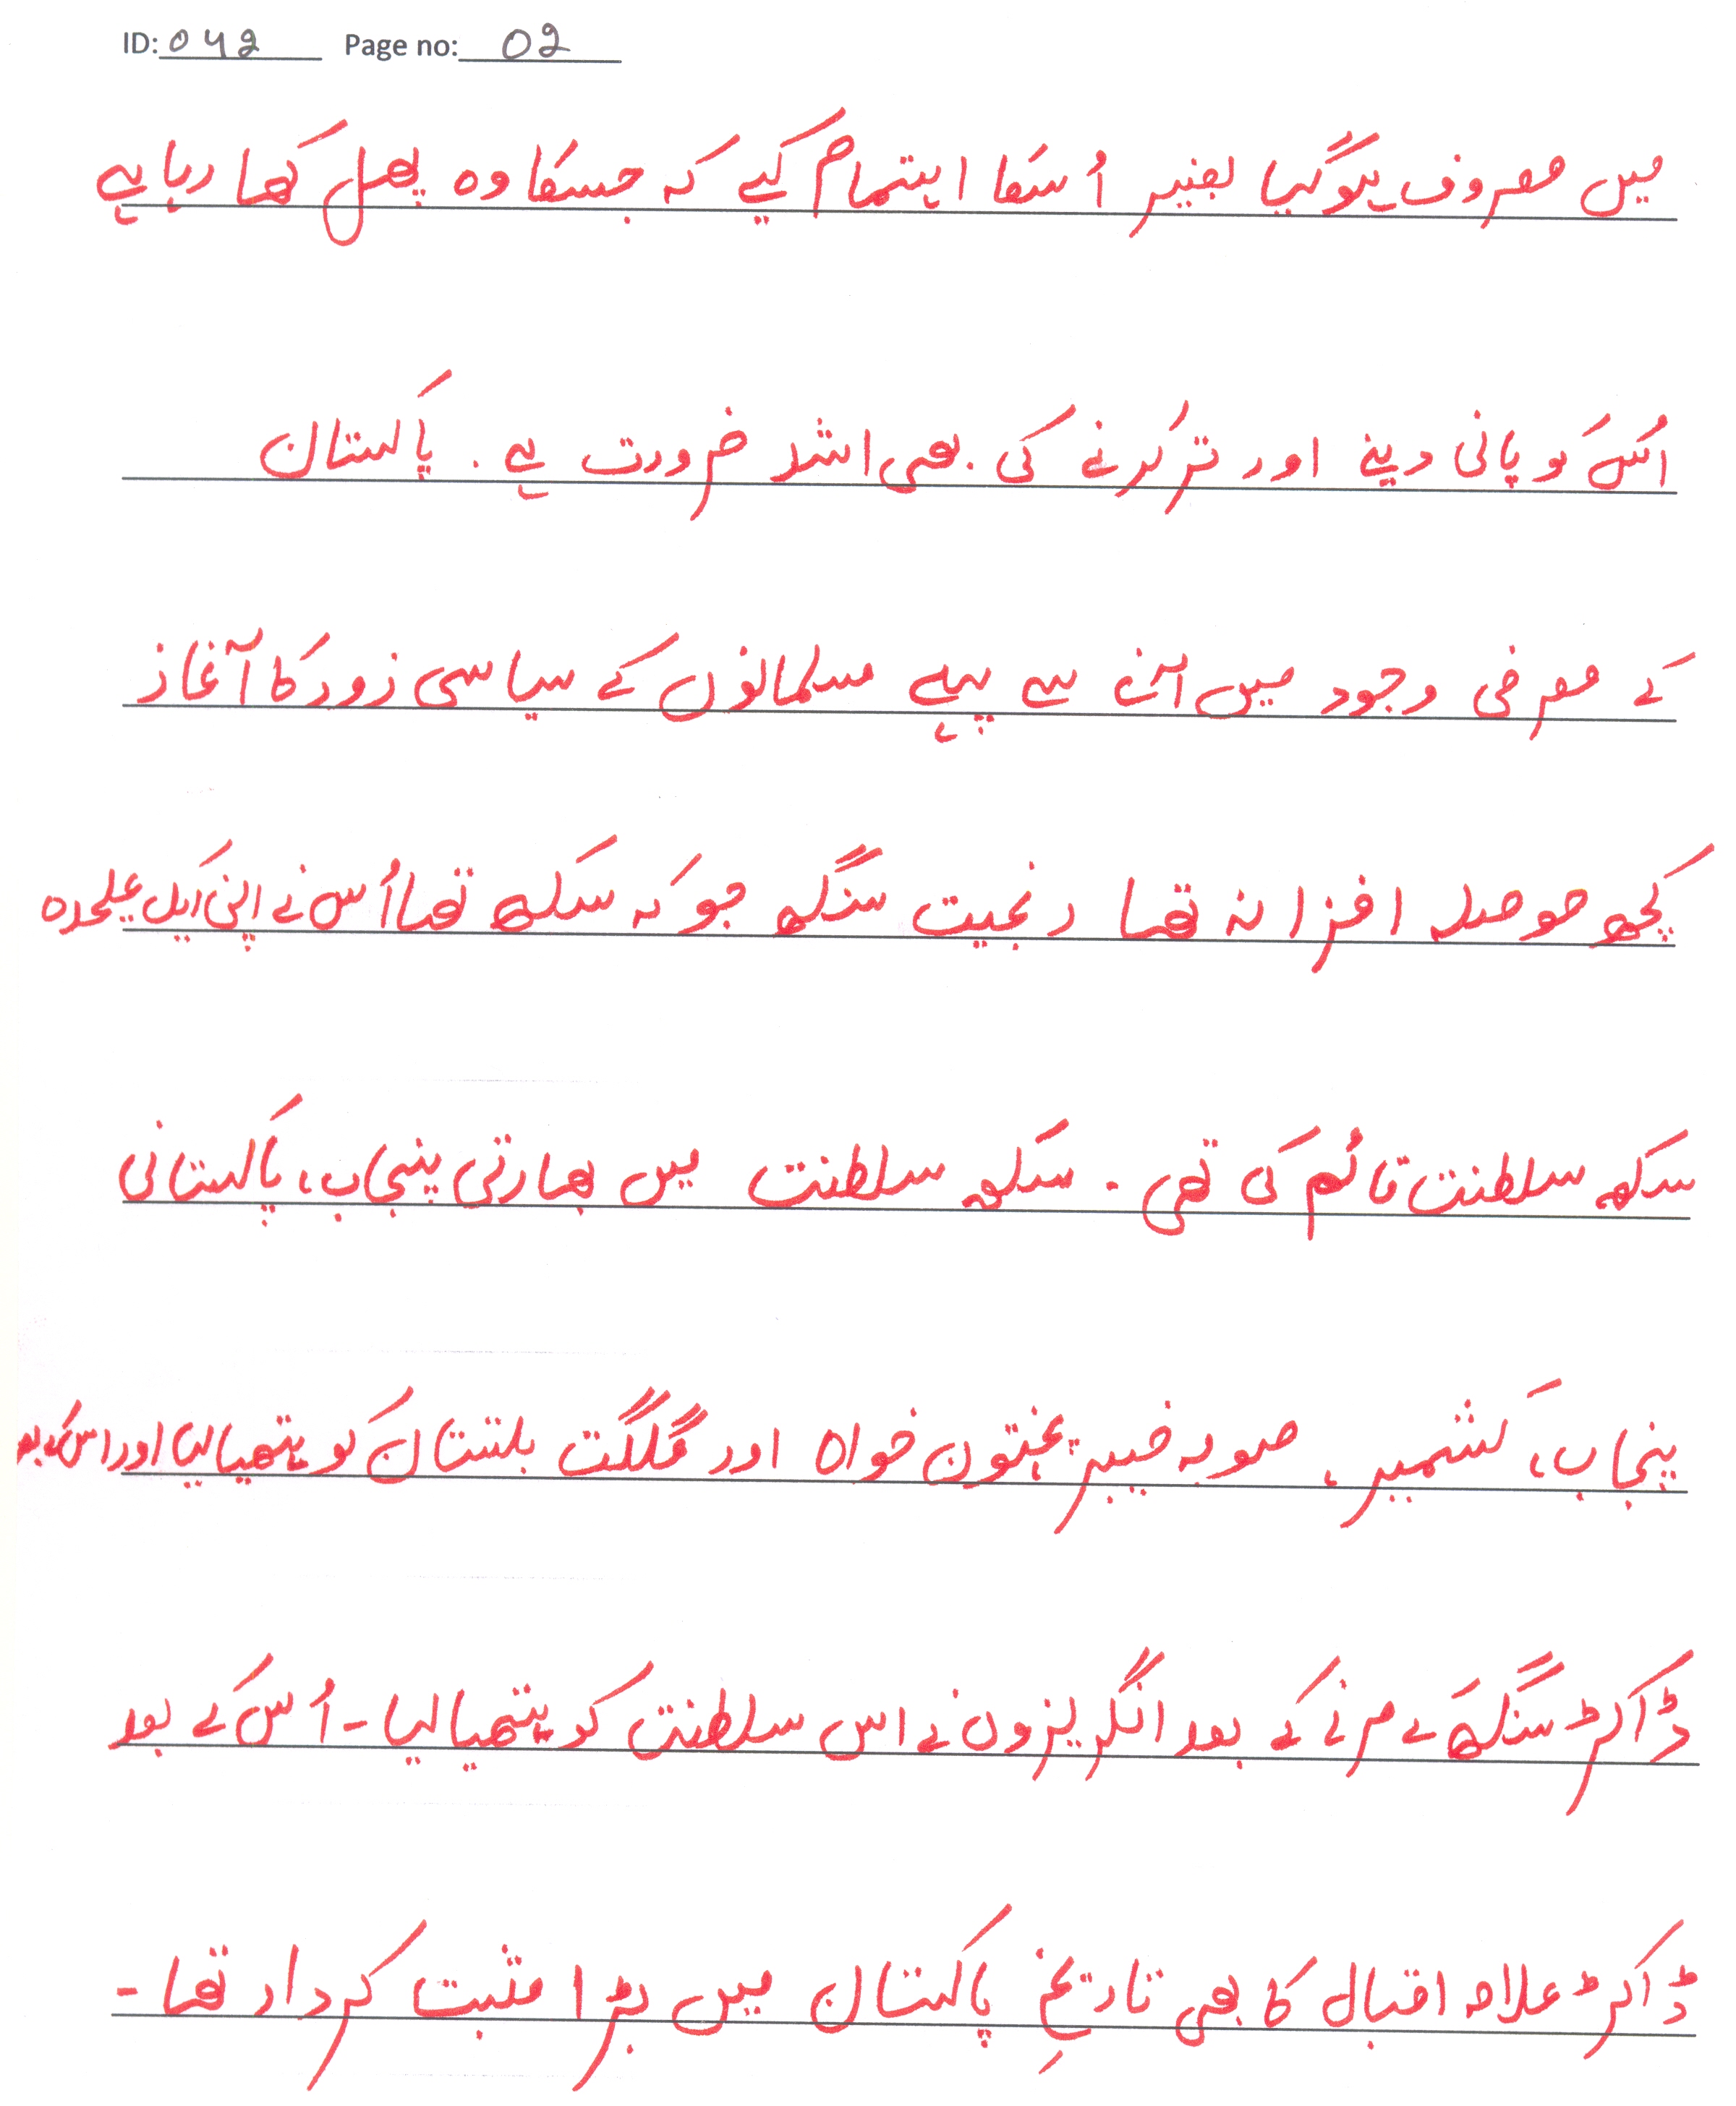 ID: 042 Page no: 02
میں مصروف ہوگیا بغیر اُسکا اہتمام کیے کہ جسکا وہ پھل کھا رہا ہے
اُس کو پانی دینے اور تر کرنے کی بھی اشد ضرورت ہے. پاکستان
کے معرضی وجود میں آنے سے پہلے مسلمانوں کے سیاسی زور کا آغاز
کچھ حوصلہ افزا نہ تھا رنجیت سنگھ جو کہ سکھ تھا اُس نے اپنی ایک علیحدہ
سکھ سلطنت قائم کی تھی - سکھ سلطنت میں بھارتی پنجاب، پاکستانی
پنجاب، کشمیر، صوبہ خیبر پختون خواہ اور گلگت بلتستان کو ہتھیالیا اور اس کے بعد
ڈاکٹر سنگھ کے مرنے کے بعد انگریزوں نے اس سلطنت کو ہتھیا لیا - اُس کے بعد
ڈاکٹر علامہ اقبال کا بھی تاریخِ پاکستان میں بڑا مثبت کردار تھا -